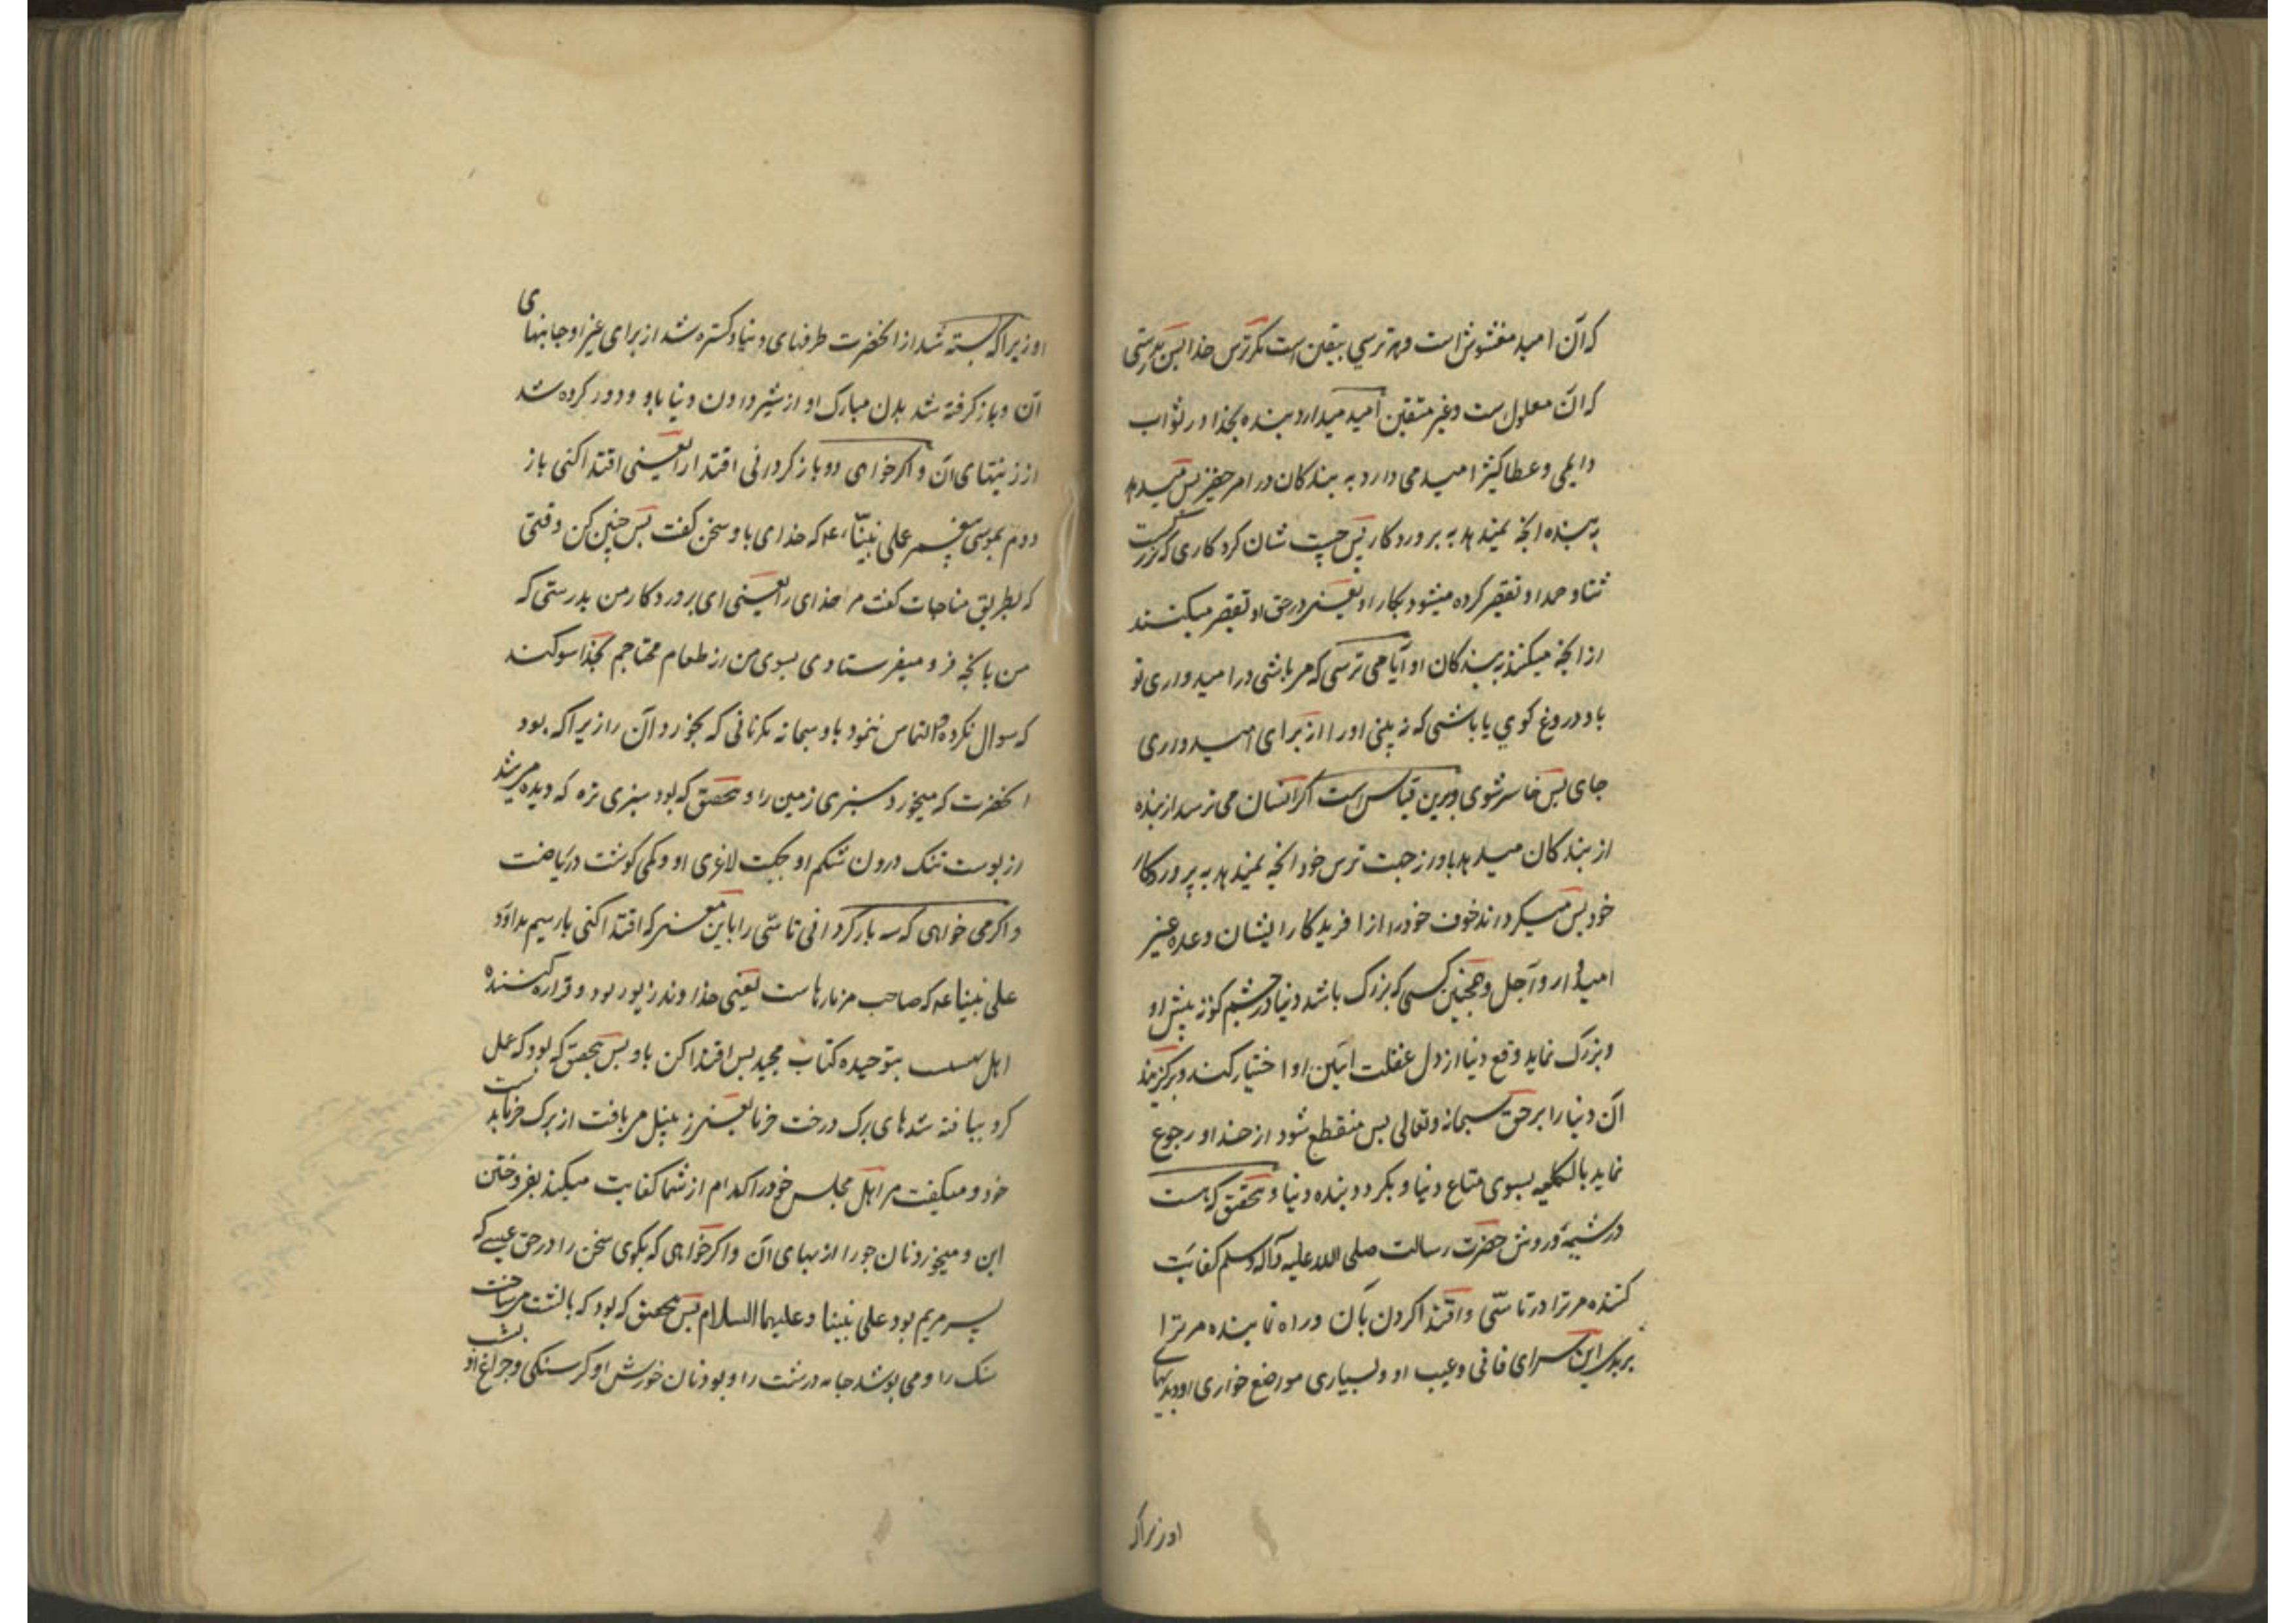 که آن امید مغشوش است و هر ترسی بیقین است مکر ترس خدا پس بدرستی
که آن معلول است و غیر متقین امید میدارد بنده بخدا در ثواب
دایمی و عطا کثیر امید می دارد به بندکان در امر حقیر پس میدهد
به بنده انچه نمیدهد به پروردکار پس چیست شان کردکاری که بزرکست
ثنا و حمد او تقصیر کرده میشود بکار او یعنی در حق او تقصیر میکنند
از انچه میکنند به بندکان او آیا می ترسی که مر باشی در امیدواری تو
باو دروغ کوی یا باشی که نه بینی او را از برای امیدواری
جای پس خاسر شوی و برین قیاس است اکر انسان می ترسد از بنده
از بندکان میدهد باو از جهت ترس خود انچه نمیدهد به پروردکار
خود پس میکرداند خوف خود را از افریدکار ایشان وعده غیر
امیدوار و آجل و همچنین کسی که بزرک باشد دنیا در چشم کوته بینش او
و بزرک نماید وقع دنیا از دل غفلت آئین او اختیار کند و برکزیند
آن دنیا را بر حق سبحانه و تعالی پس منقطع شود از خدا و رجوع
نماید بالکلیه بسوی متاع دنیا و بکردد بنده دنیا و تحقیق که هست
در شیمه و روش حضرت رسالت صلی الله علیه و آله و سلم کفایت
کننده مر ترا در تاسّی و اقتدا کردن بآن و راه نماینده مر ترا
بر بدی این سرای فانی و عیب او و بسیاری مواضع خواری او و بدیهای
او زیرا که
او زیرا که بسته شد از انحضرت طرفهای دنیا و کستره شد از برای غیر او جانبهای
آن و باز کرفته شد بدن مبارک او از شیر دادن دنیا باو و دور کرده شد
از زینتهای آن و اکر خواهی دو باز کردانی اقتدا را یعنی اقتدا کنی باز
دوم بموسی پیغمبر علی نبینا ۴ که خدای باو سخن کفت پس چنین کن وقتی
که بطریق مناجات کفت مر خدای را یعنی ای پروردکار من بدرستی که
من بانچه فرو میفرستادی بسوی من از طعام محتاجم بخدا سوکند
که سوال نکرد و التماس ننمود باو سبحانه مکر نانی که بخورد آن را زیرا که بود
انحضرت که میخورد سبزی زمین را و تحقیق که بود سبزی تره که دیده می شد
از پوست تنک درون شکم او بجهت لاغری او و کمی کوشت در ریاضت
و اکر می خواهی که سه بار کردانی تاسّی را باین معنی که اقتدا کنی بار سیم بداود
علی نبینا عه که صاحب مزمارهاست یعنی خداوند زبور بود و قرائت کننده
اهل بهشت بتوحیده کتاب مجید پس اقتدا کن باو پس بتحقیق که بود که عمل
کرد ببافته شدهای برک درخت خرما یعنی زنبیل می بافت از برک خرما بدست
خود و میکفت مر اهل مجلس خود را کدام از شما کفایت میکند بفروختن
این و میخورد نان جو را از بهای آن و اکر خواهی که بکوی سخن را در حق عیسی که
پسر مریم بود علی نبینا و علیهما السلام پس تحقیق که بود که بالشت می ساخت
سنک را و می پوشد جامه درشت را و بود نان خورش او کرسنکی و چراغ او بشب